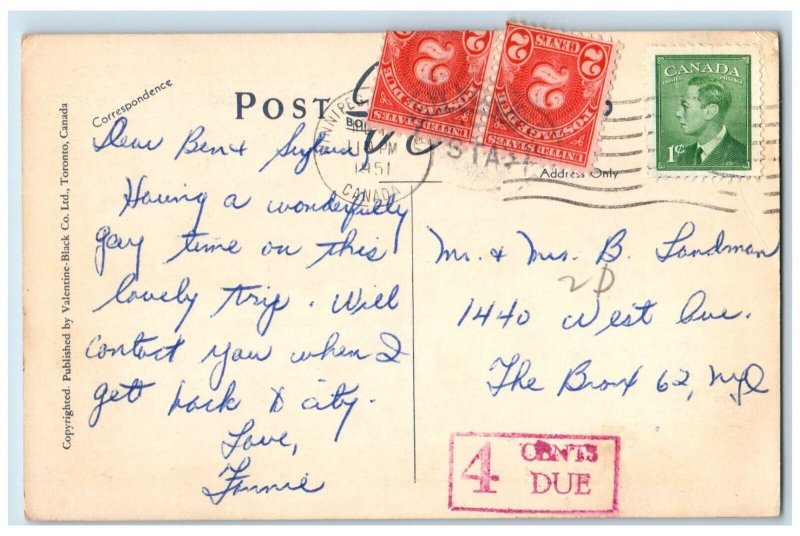 Copyrighted. Published by Valentine-Black Co. Ltd., Toronto, Canada
Correspondence
POST
Address Only
WINNIPEG
PM
1951
CANADA
2
POSTAGE DUE
UNITED STATES
2
CENTS
2
POSTAGE DUE
UNITED STATES
STA
CANADA
POSTES POSTAGE
1¢
Dear Ben &
Having a wonderfully
gay time on this
lovely trip. Will
contact you when I
get back to city.
Love,
Fannie
Mr. & Mrs. B. Landman
2D
1440 West Ave.
The Bronx 62, NYC
4 CENTS
DUE